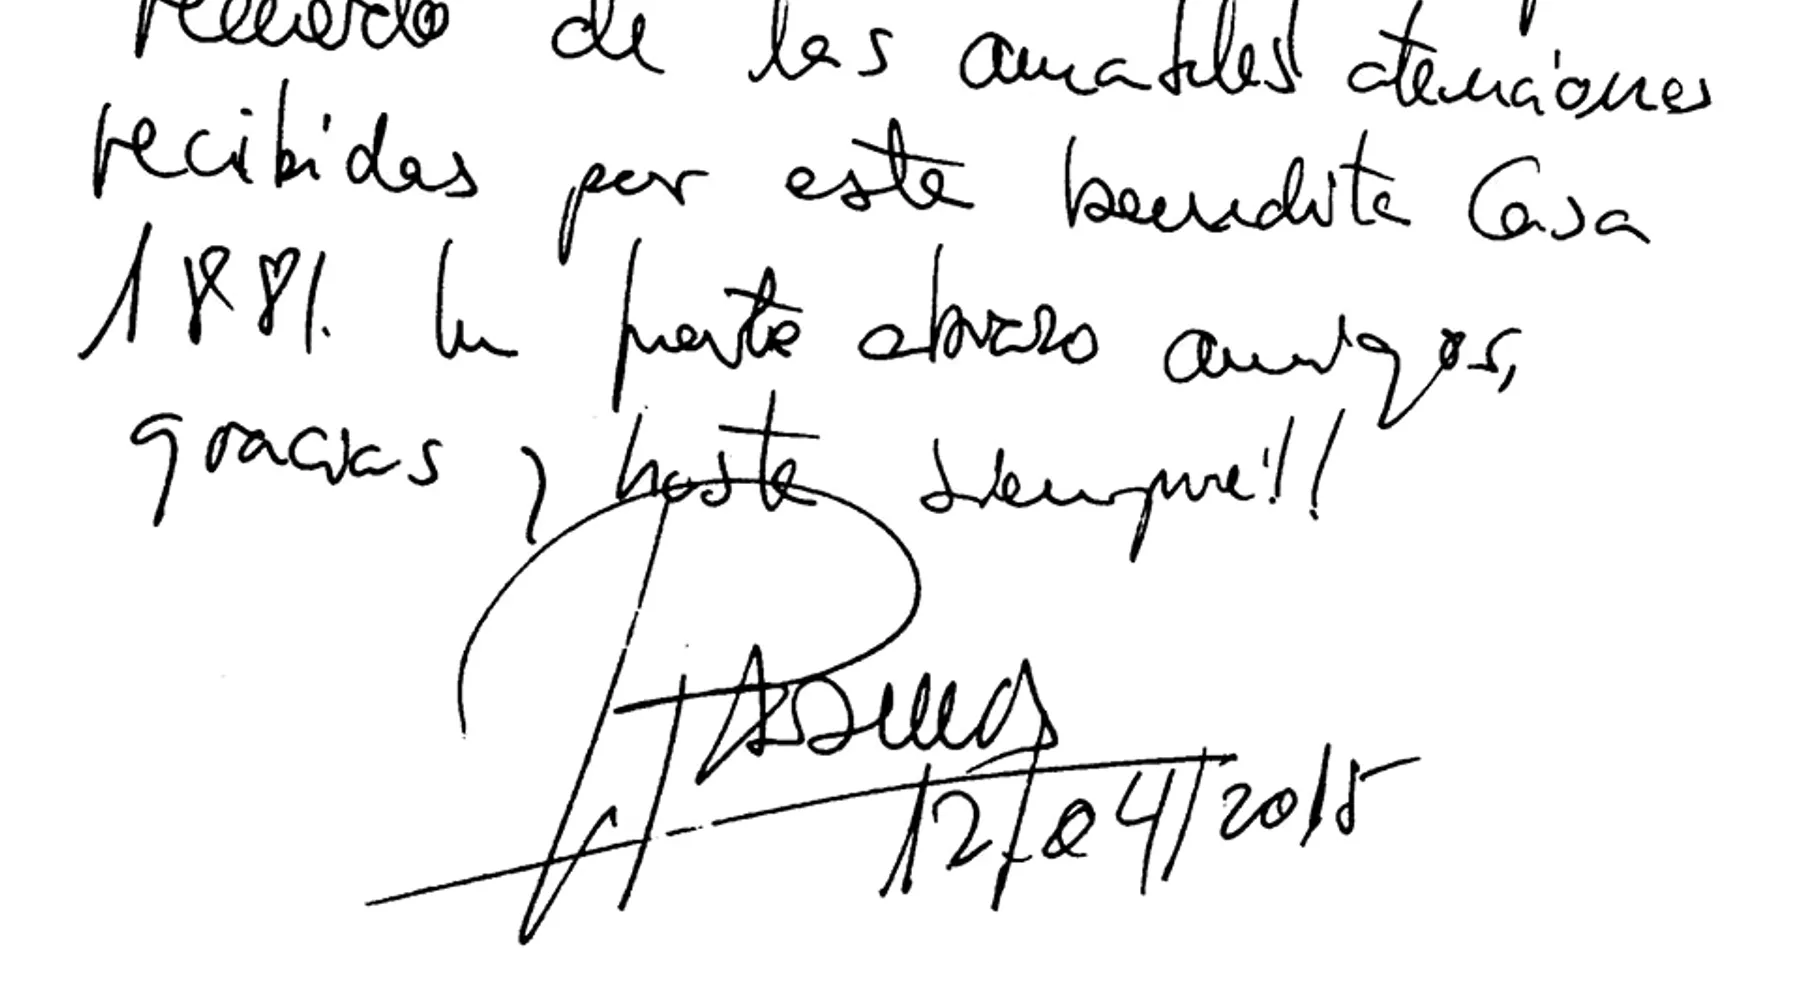 recuerdo de las amables atenciones
recibidas por esta bendita Casa
1881. Un fuerte abrazo amigos,
gracias y hasta siempre!!
12/04/2015